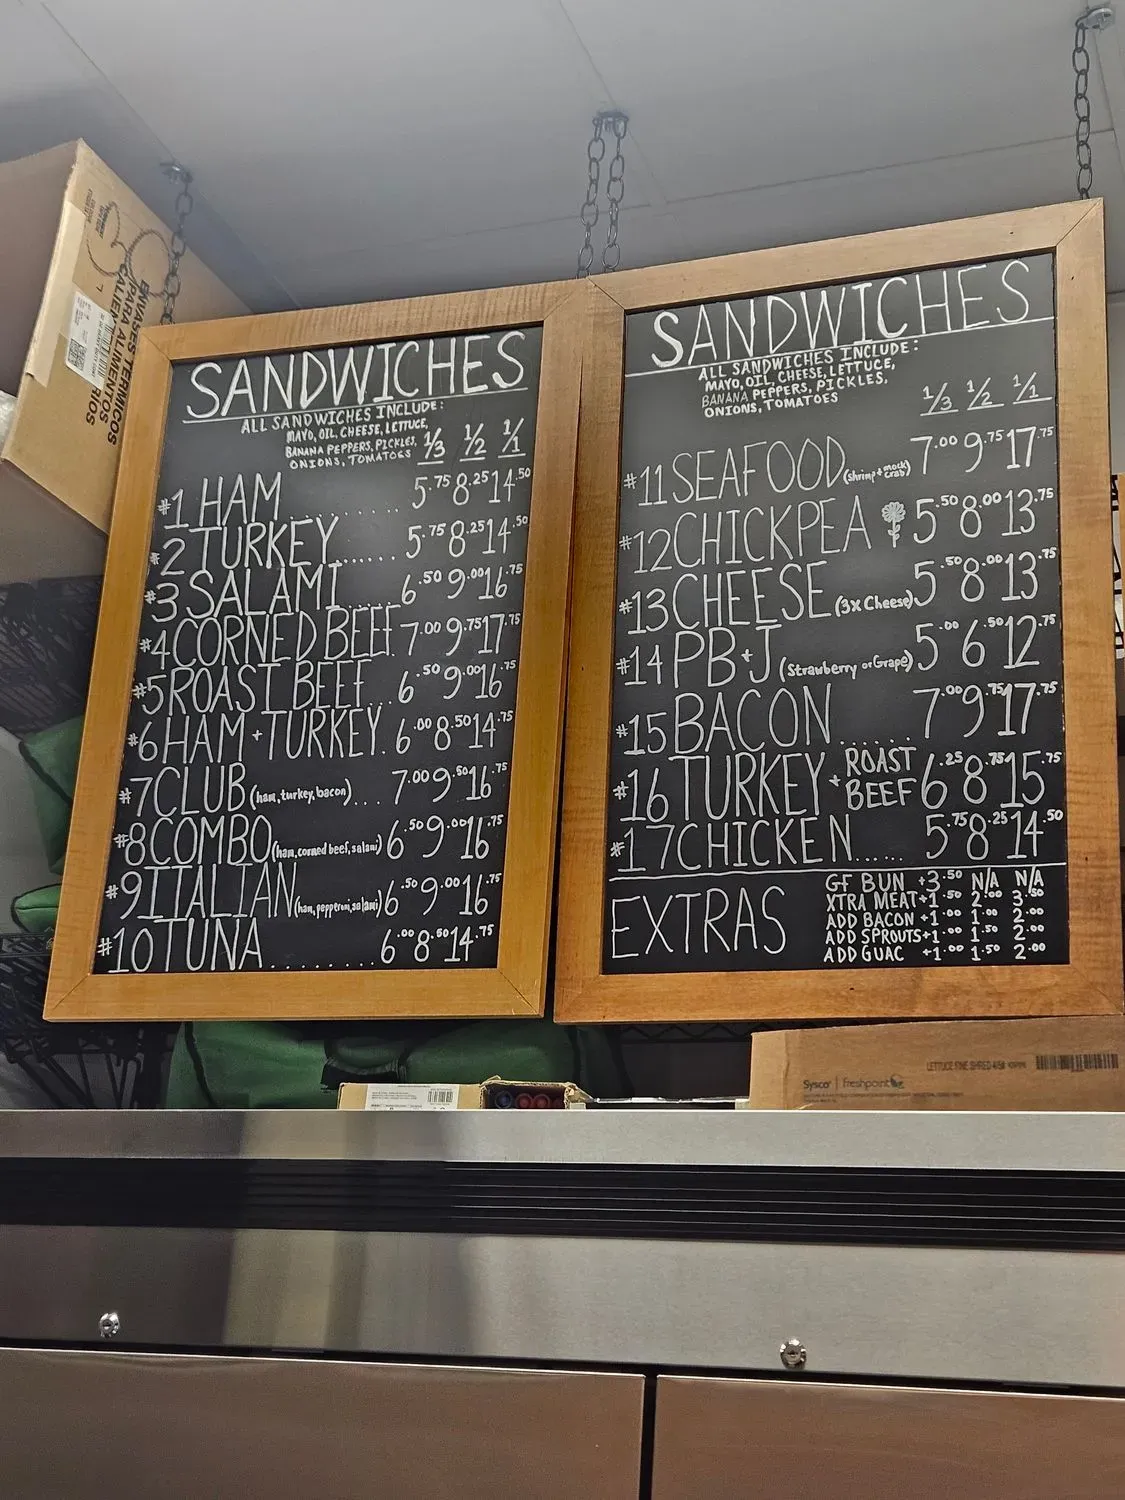 ENVASES TERMICOS
PARA ALIMENTOS
SANDWICHES
ALL SANDWICHES INCLUDE:
MAYO, OIL, CHEESE, LETTUCE,
BANANA PEPPERS, PICKLES,
ONIONS, TOMATOES
1/3 1/2 1/1
#1 HAM ........ 5.75 8.25 14.50
#2 TURKEY...... 5.75 8.25 14.50
#3 SALAMI... 6.50 9.00 16.75
#4 CORNED BEEF. 7.00 9.75 17.75
#5 ROAST BEEF... 6.50 9.00 16.75
#6 HAM + TURKEY. 6.00 8.50 14.75
#7 CLUB (ham, turkey, bacon)... 7.00 9.50 16.75
#8 COMBO (ham, corned beef, salami) 6.50 9.00 16.75
#9 ITALIAN (ham, pepperoni, salami) 6.50 9.00 16.75
#10 TUNA......... 6.00 8.50 14.75
SANDWICHES
ALL SANDWICHES INCLUDE:
MAYO, OIL, CHEESE, LETTUCE,
BANANA PEPPERS, PICKLES,
ONIONS, TOMATOES
1/3 1/2 1/1
#11 SEAFOOD (shrimp + mock crab) 7.00 9.75 17.75
#12 CHICKPEA 5.50 8.00 13.75
#13 CHEESE (3x Cheese) 5.50 8.00 13.75
#14 PB+J (Strawberry or Grape) 5.00 6.50 12.75
#15 BACON...... 7.00 9.75 17.75
#16 TURKEY + ROAST BEEF 6.25 8.75 15.75
#17 CHICKEN...... 5.75 8.25 14.50
EXTRAS
GF BUN +3.50 N/A N/A
XTRA MEAT +1.50 2.00 3.50
ADD BACON +1.00 1.00 2.00
ADD SPROUTS +1.00 1.50 2.00
ADD GUAC +1.00 1.50 2.00
LETTUCE FINE SHRED
Sysco | Freshpoint